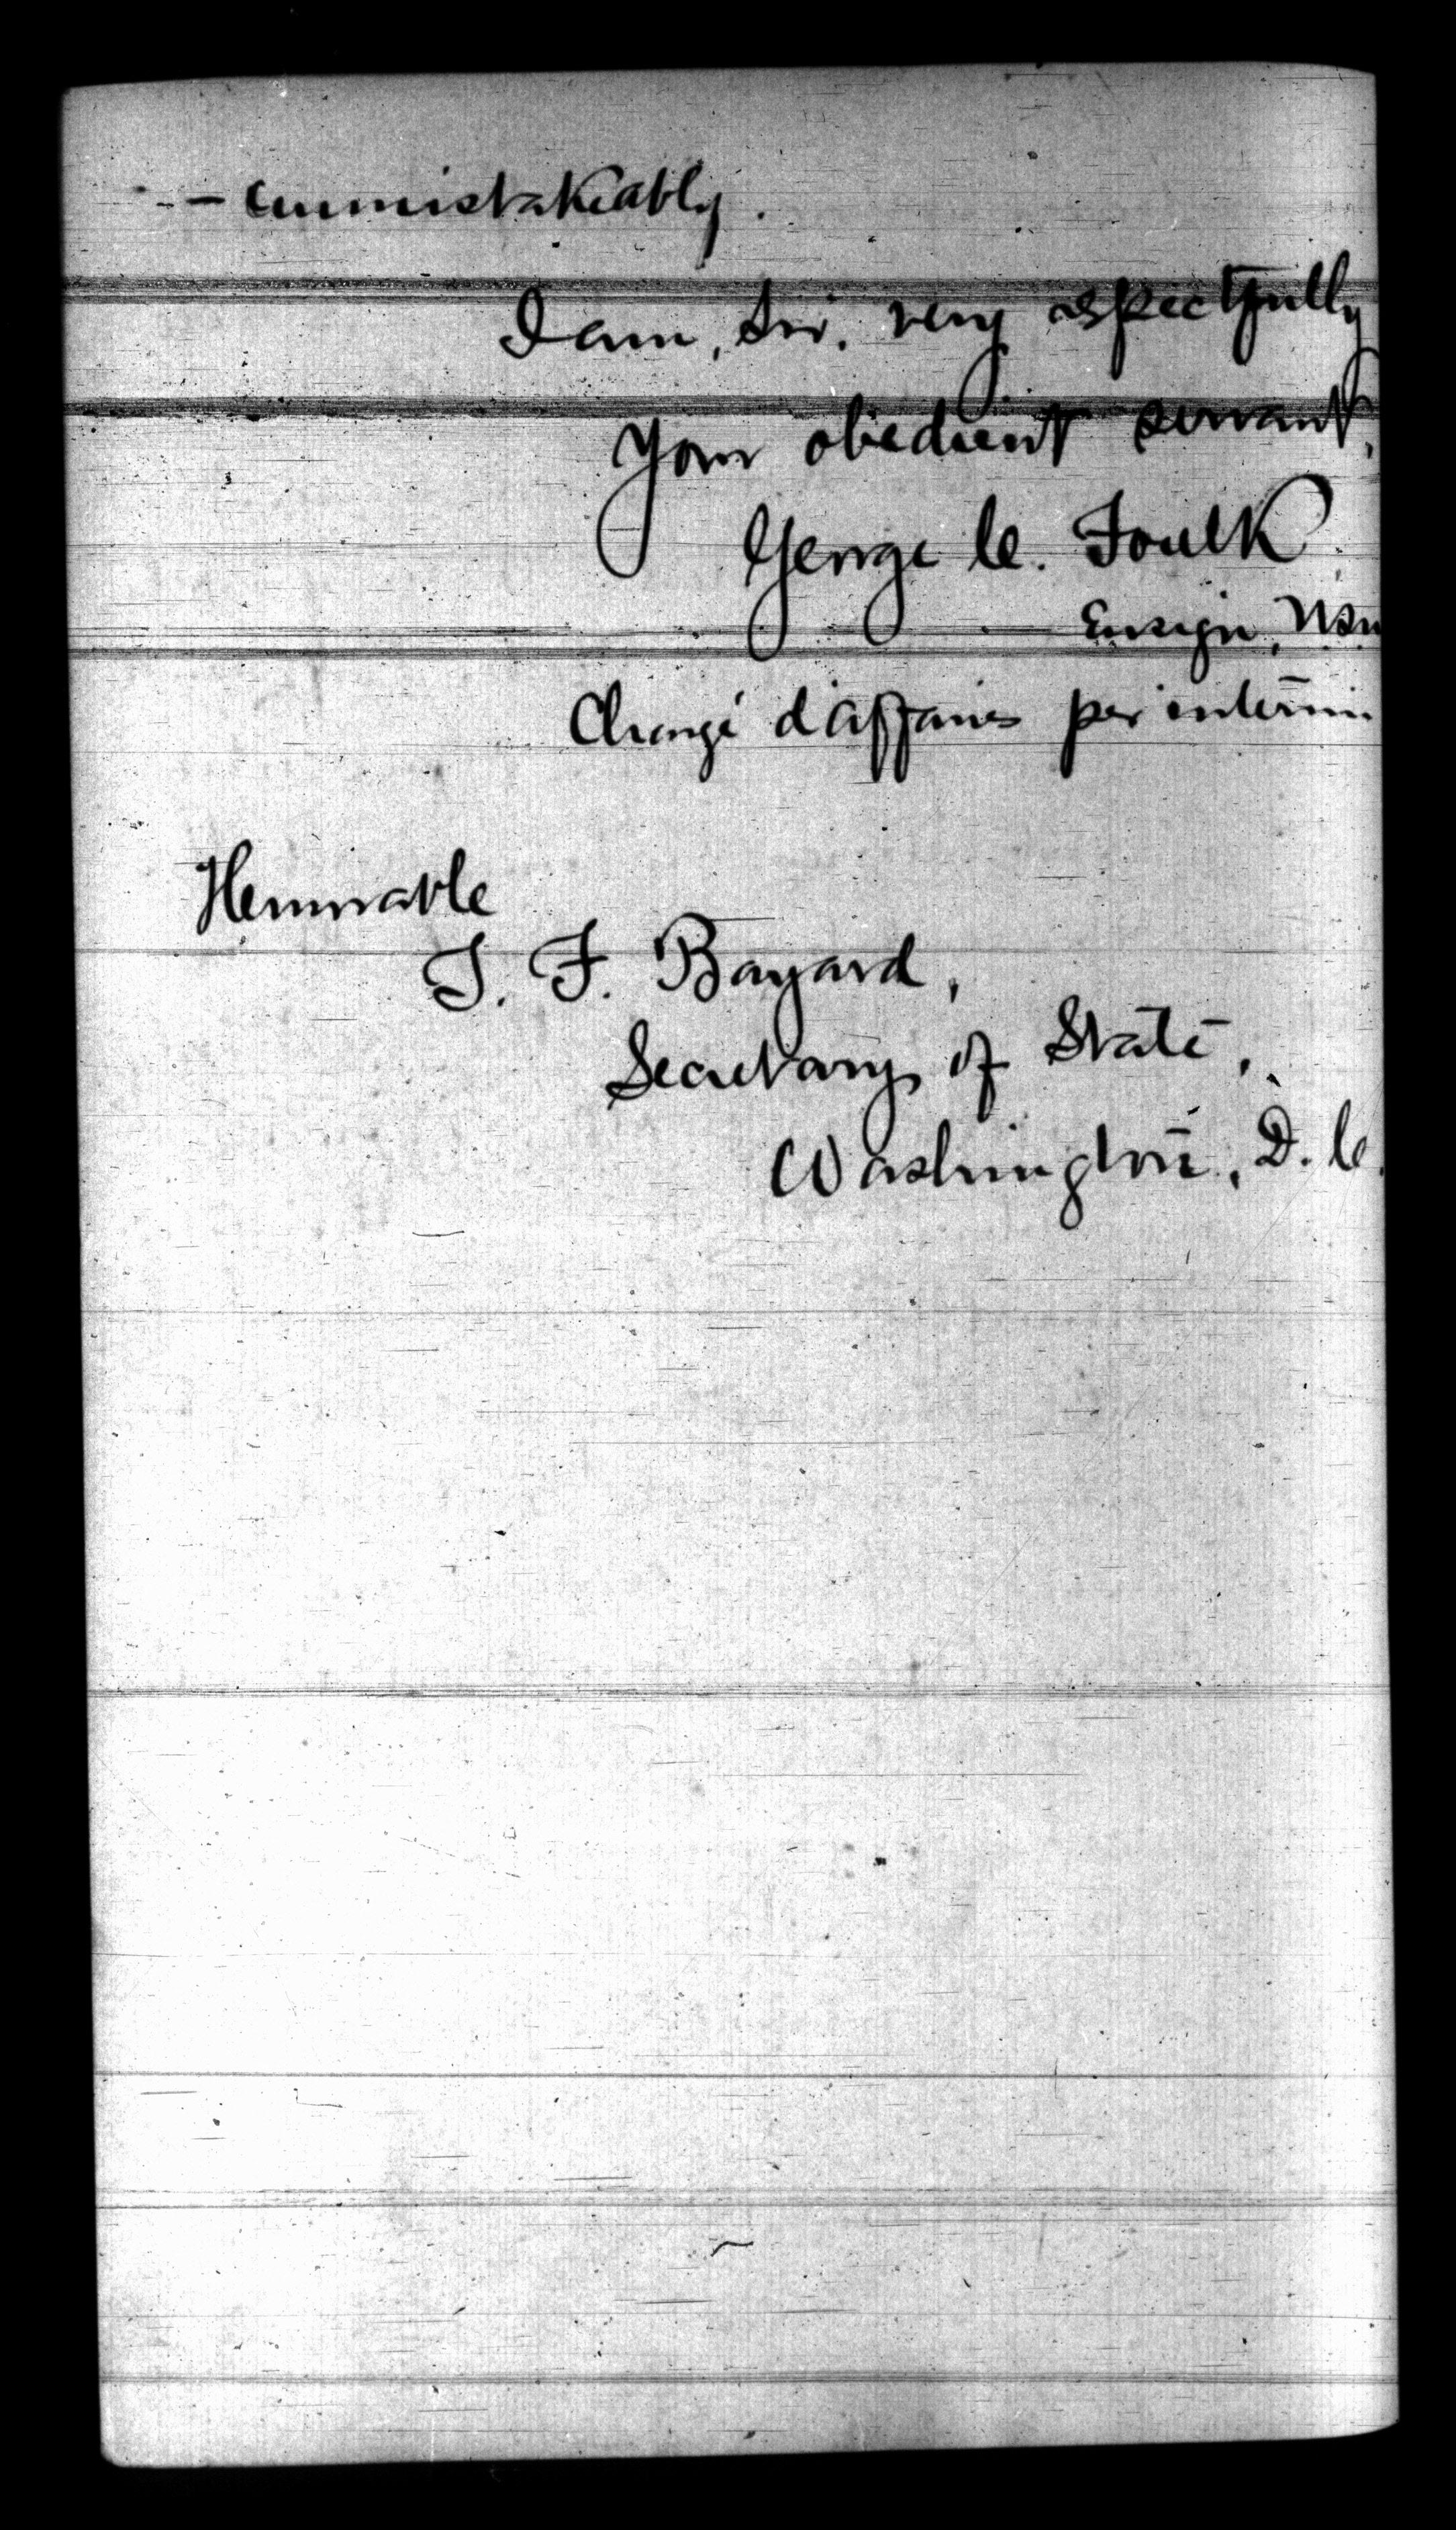 - unmistakeably.
I am, Sir, very respectfully
Your obedient servant,
George C. Foulk
Ensign, USN
Chargé d'affaires per interim
Honorable
T. F. Bayard,
Secretary of State,
Washington, D.C.